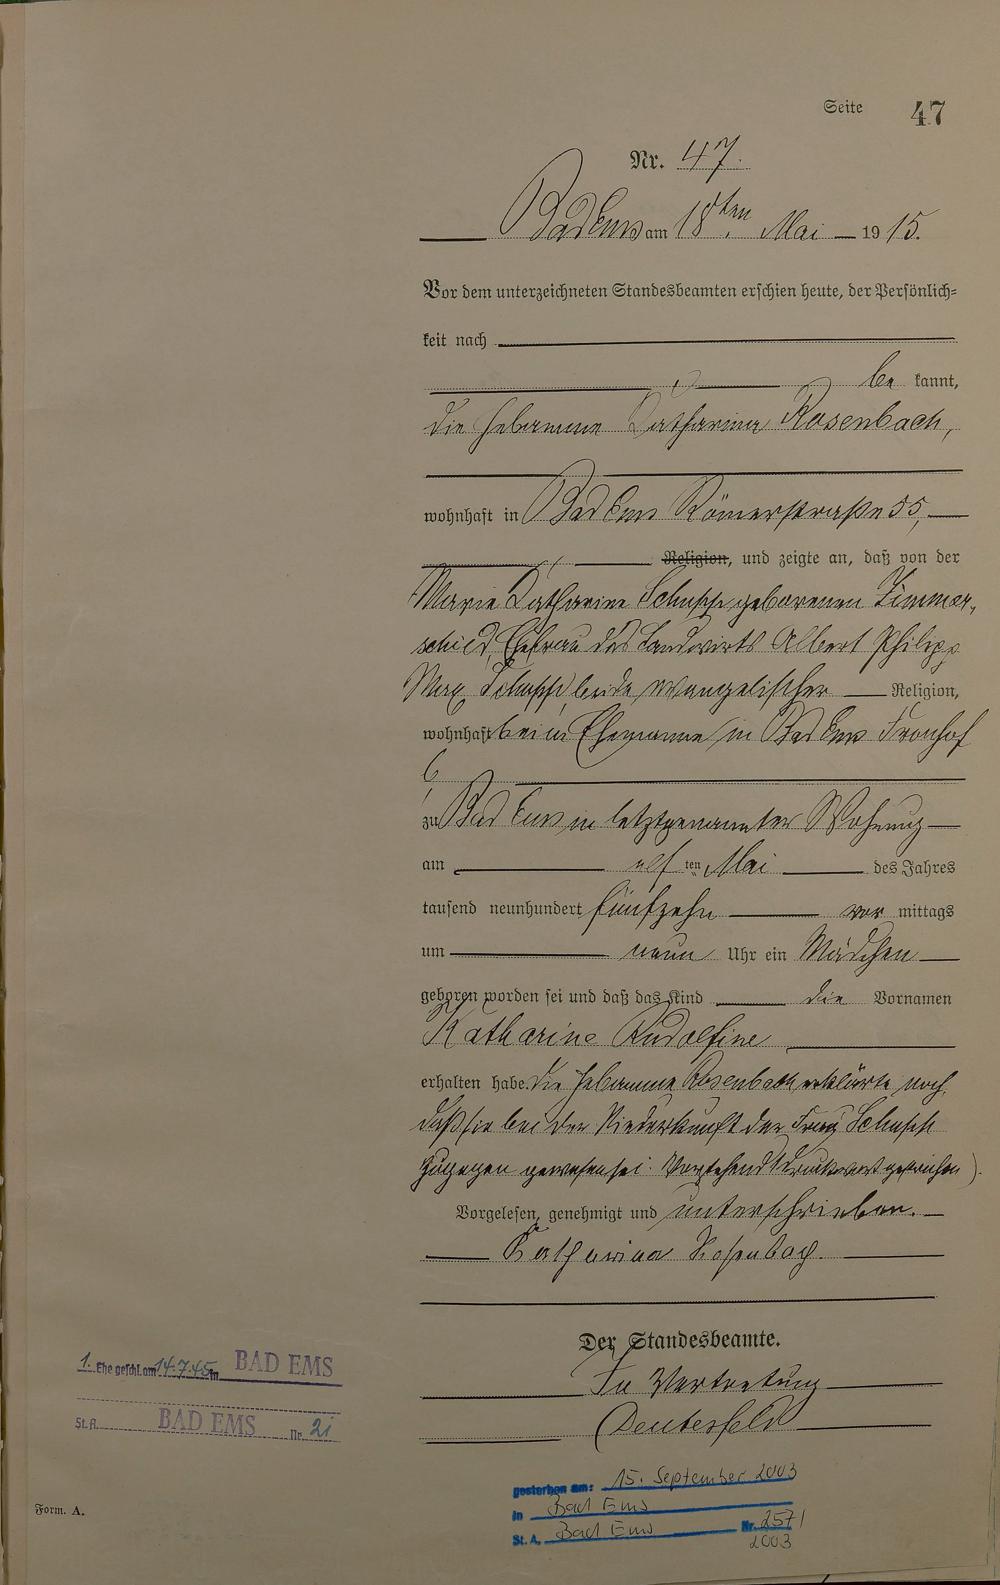 Seite 47
Nr. 47.
Bad Ems am 18ten Mai 1915.
Vor dem unterzeichneten Standesbeamten erschien heute, der Persönlich=
keit nach
be kannt,
die Hebamme Katharina Rosenbach,
wohnhaft in Bad Ems Römerstraße 55,
Religion, und zeigte an, daß von der
Marie Katharine Schupp geborenen Zimmer-
schied, Ehefrau des Landwirts Albert Philipp
Max Schupp, beide evangelischer Religion,
wohnhaft beim Ehemanne in Bad Ems Fronhof
6,
zu Bad Ems in letztgenannter Wohnung
am elf ten Mai des Jahres
tausend neunhundert fünfzehn vor mittags
um neun Uhr ein Mädchen
geboren worden sei und daß das Kind die Vornamen
Katharine Rudolfine
erhalten habe. Die Hebamme Rosenbach erklärte noch,
daß sie bei der Niederkunft der Frau Schupp
zugegen gewesen sei. Vorstehend 1 Druckwort gestrichen).
Vorgelesen, genehmigt und unterschrieben.
Katharina Rosenbach.
Der Standesbeamte.
In Vertretung
Deutesfeld
1. Ehe geschl. am 14.7.45 in BAD EMS
St.A. BAD EMS Nr. 21
gestorben am: 15. September 2003
in Bad Ems
St. A. Bad Ems Nr. 257/
2003
Form. A.